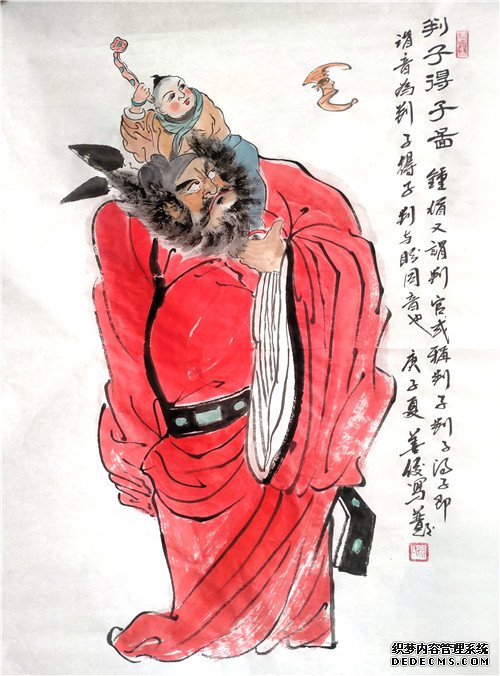 判子得子啚 鍾馗又謂判官或稱判子判子得子即
谐音為判子得子判与盼同音也 庚子夏 善俊寫
织梦内容管理系统
DEDECMS.COM